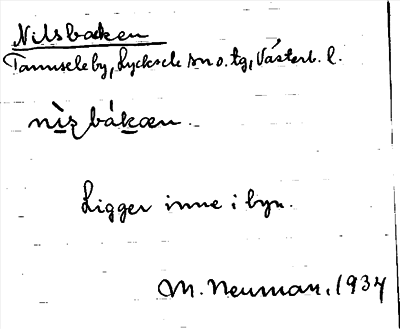 Nilsbacken
Tannsele by, Lycksele sn o. tg, Västerb. l.
nìs bákæn.
Ligger inne i byn.
M. Neuman, 1934